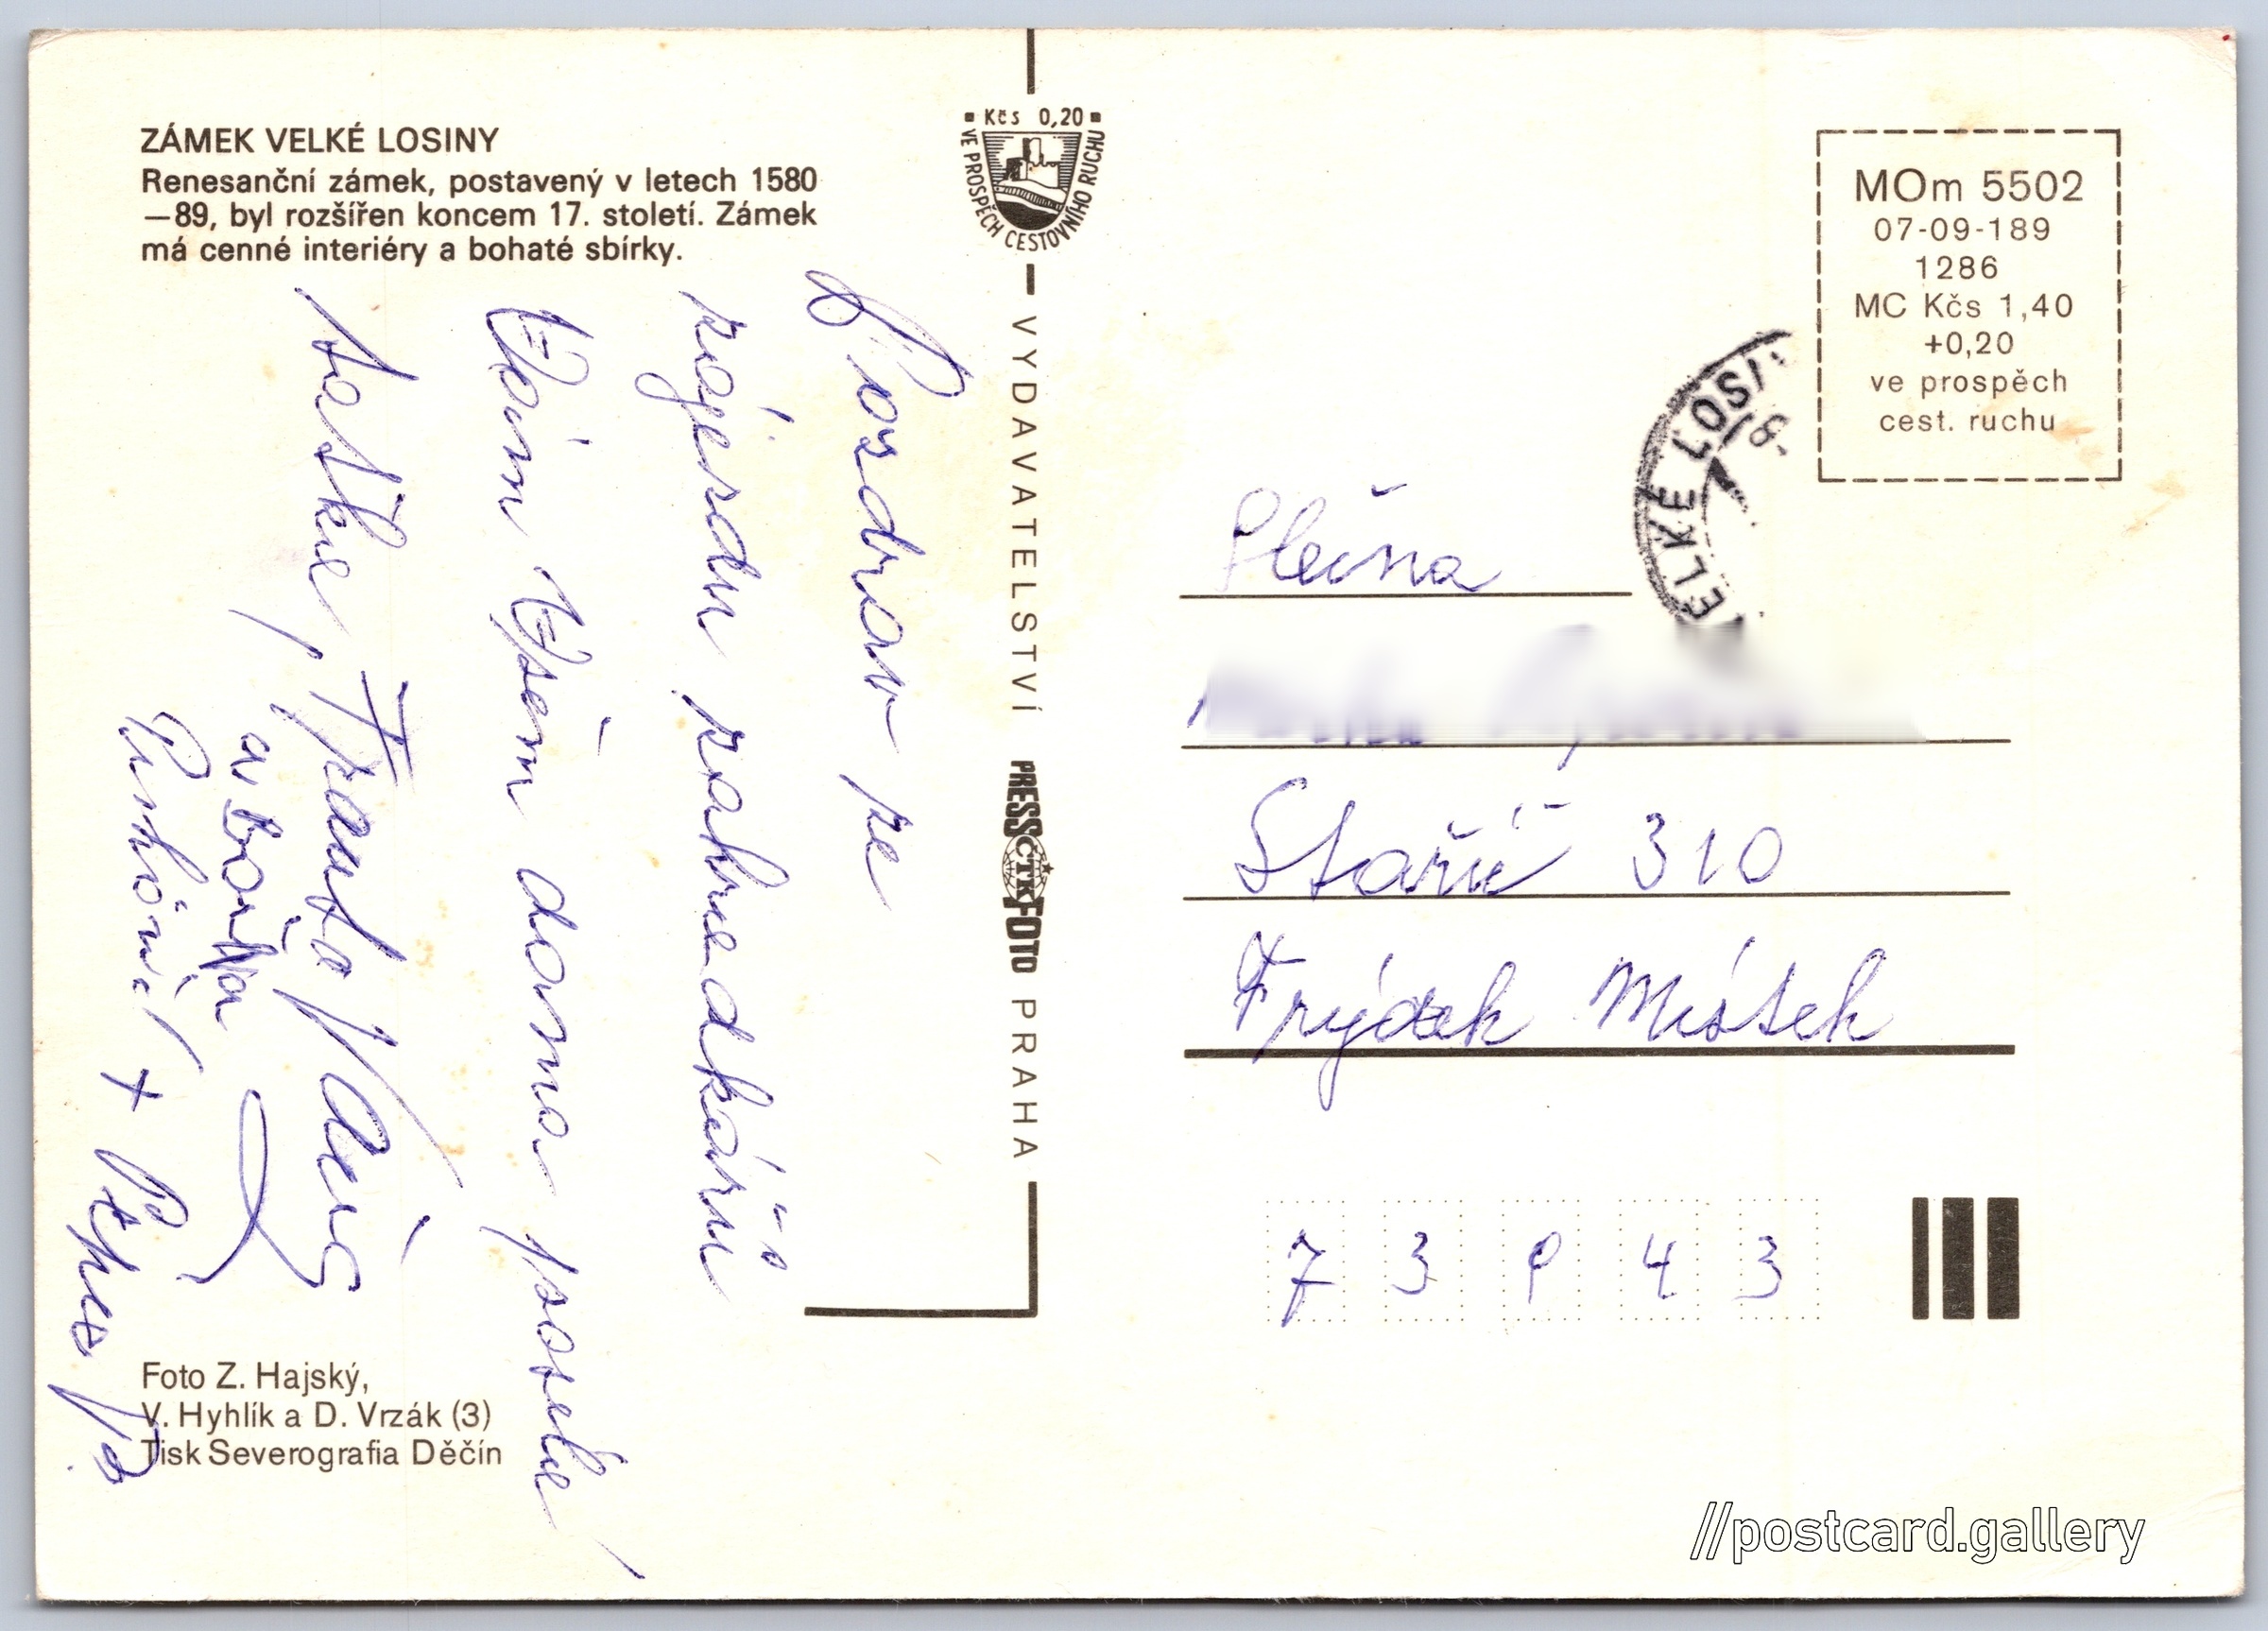 ZÁMEK VELKÉ LOSINY
Renesanční zámek, postavený v letech 1580
—89, byl rozšířen koncem 17. století. Zámek
má cenné interiéry a bohaté sbírky.
Pozdrav ze
zájezdu zahrádkářů
Vám Všem doma posílá
Franta
a Božka
+
Foto Z. Hajský,
V. Hyhlík a D. Vrzák (3)
Tisk Severografia Děčín
Kčs 0,20
VE PROSPĚCH CESTOVNÍHO RUCHU
VYDAVATELSTVÍ PRESSFOTO PRAHA
ČTK
MOm 5502
07-09-189
1286
MC Kčs 1,40
+0,20
ve prospěch
cest. ruchu
ELKÉ LOSI
Slečna
Staříč 310
Frýdek Místek
7 3 9 4 3
//postcard.gallery